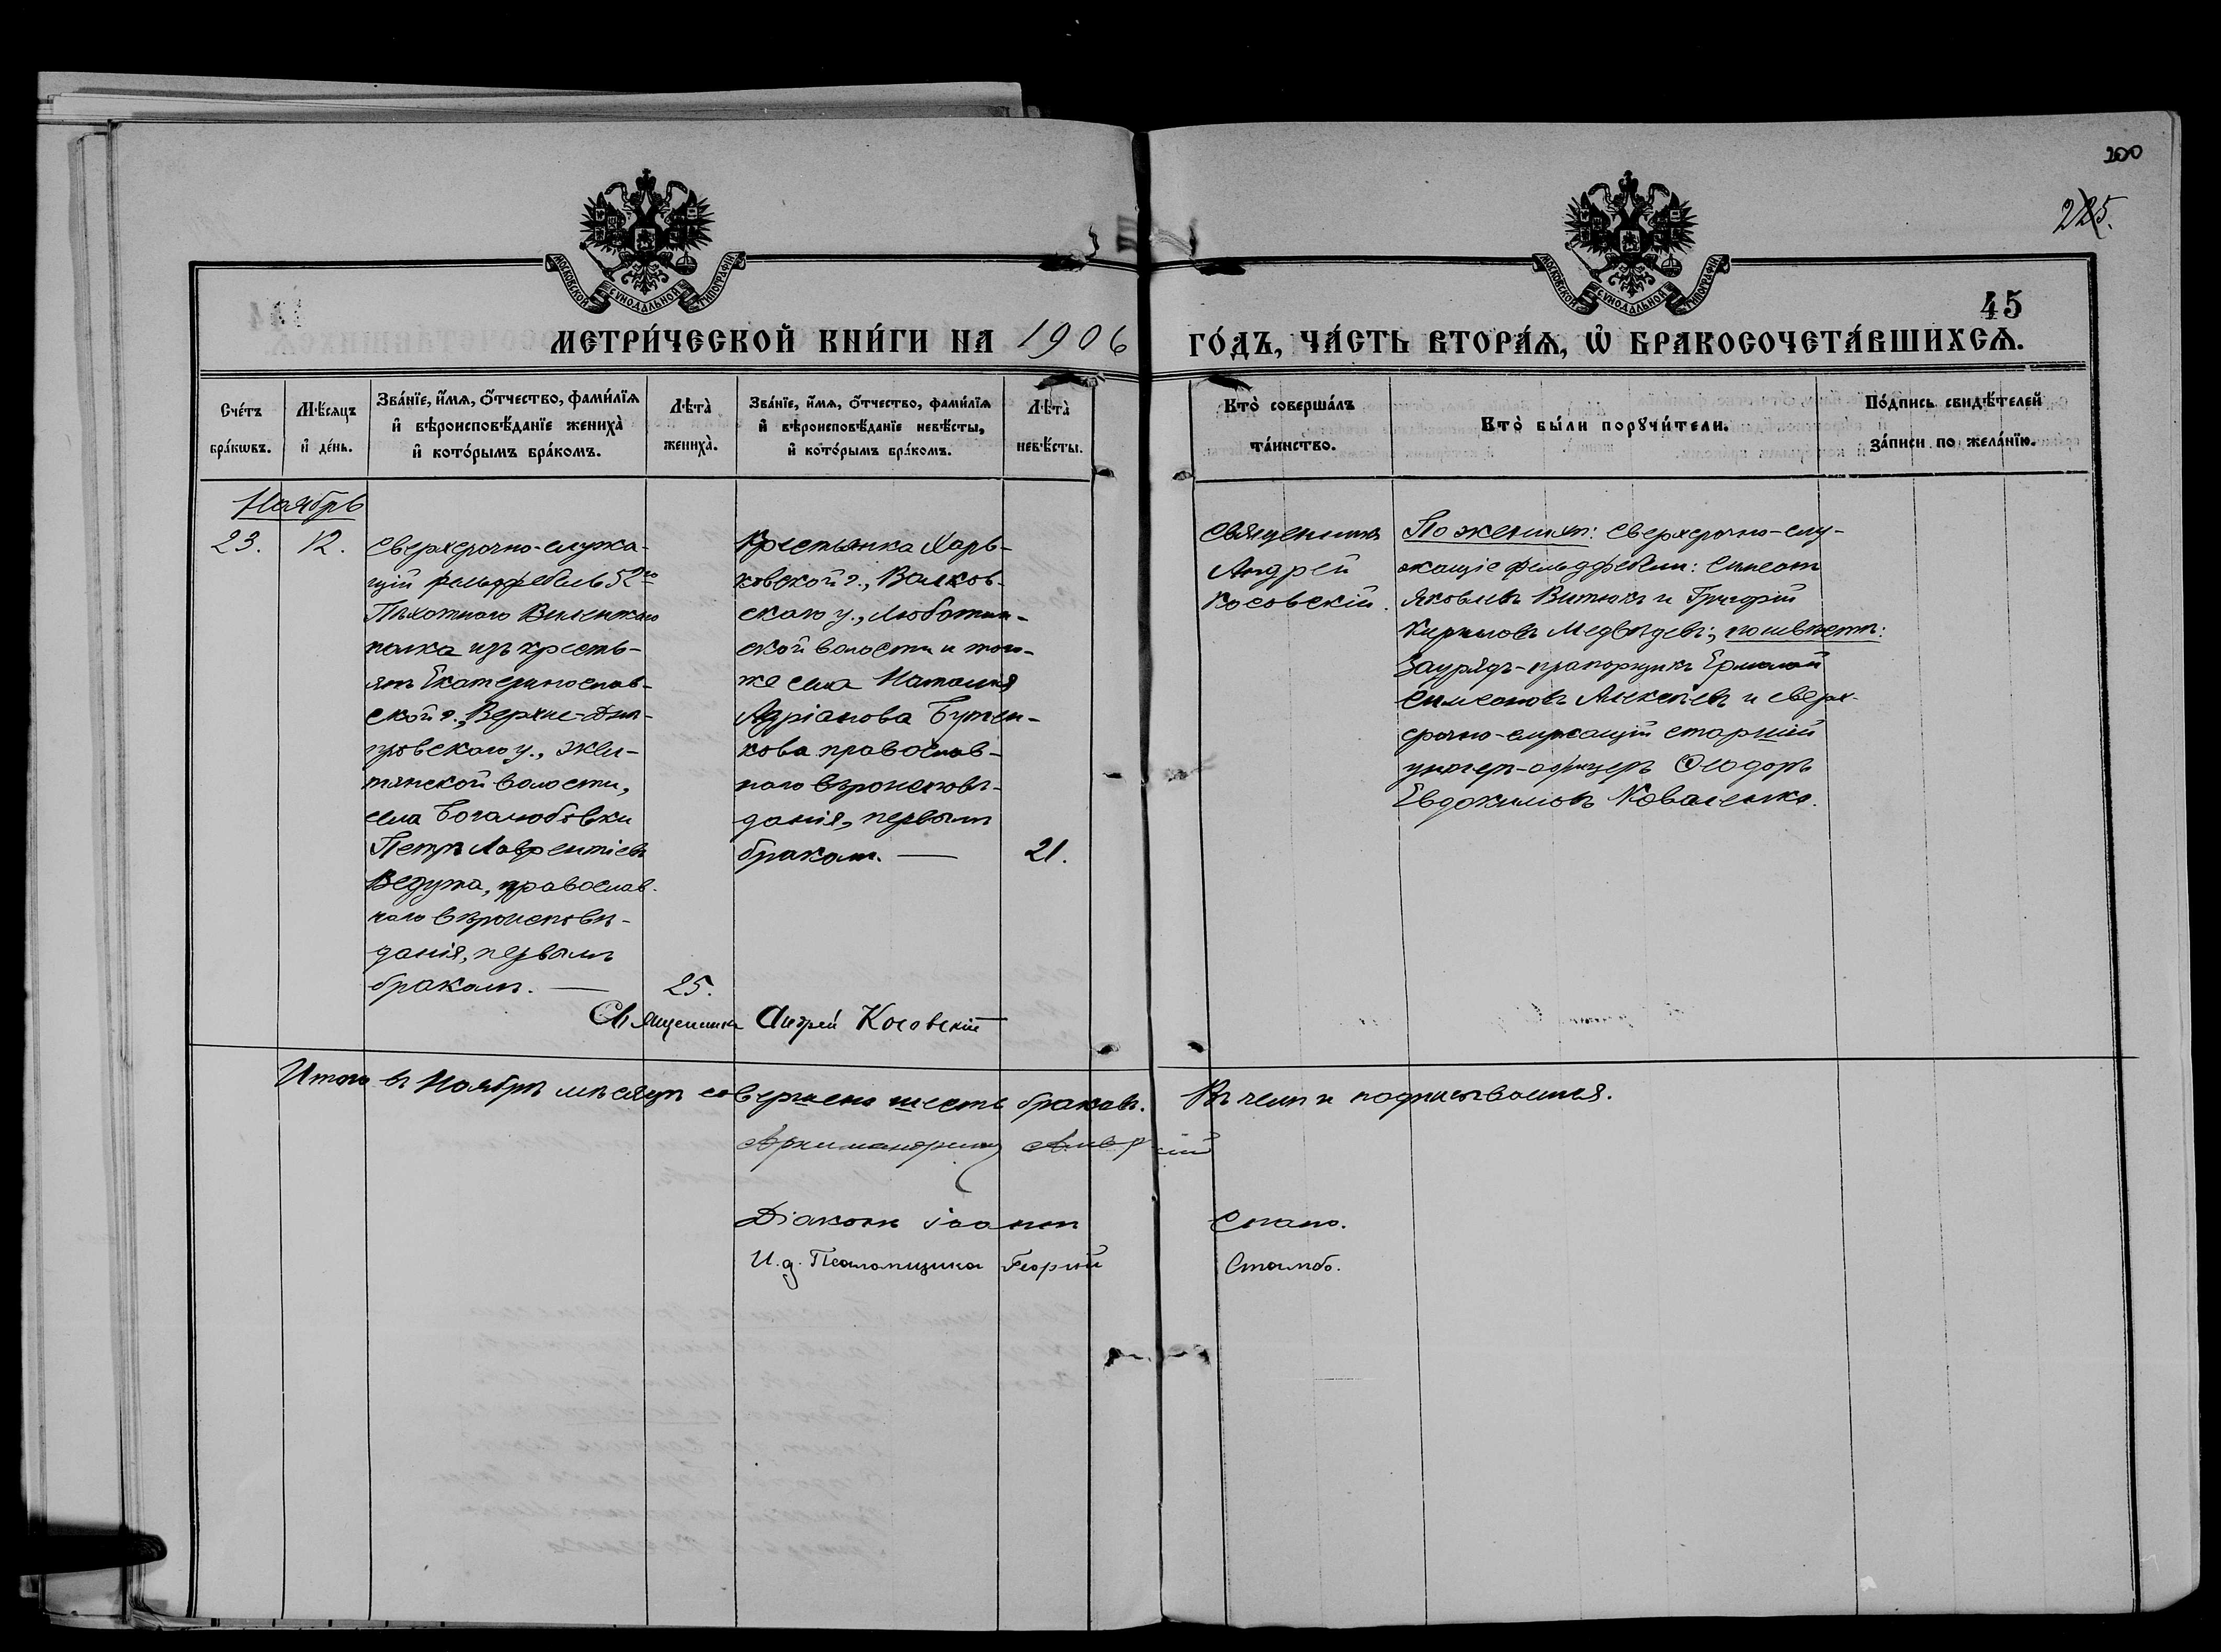 200
225.
МОСКОВСКОЙ СѴНОДАЛЬНОЙ ТИПОГРАФІИ
МОСКОВСКОЙ СѴНОДАЛЬНОЙ ТИПОГРАФІИ
45
МЕТРИ́ЧЕСКОЙ КНИ́ГИ НА 1906 ГО́ДЪ, ЧА́СТЬ ВТОРА́Ѧ, Ѡ҆ БРАКОСОЧЕТА́ВШИХСѦ.
Сче́тъ
бра́кѡвъ.
Мѣ́сѧцъ
и҆ де́нь.
Зва́нїе, и҆́мѧ, ѻ҆́тчество, фами́лїѧ
и҆ вѣроисповѣ́данїе жениха̀
и҆ кото́рымъ бра́комъ.
Лѣта̀
жениха̀.
Зва́нїе, и҆́мѧ, ѻ҆́тчество, фами́лїѧ
и҆ вѣроисповѣ́данїе невѣ́сты,
и҆ кото́рымъ бра́комъ.
Лѣта̀
невѣ́сты.
Кто̀ соверша́лъ
та́инство.
Кто̀ бы́ли порꙋчи́тели.
По́дпись свидѣ́телей
за́писи по жела́нїю.
Ноябрь
23.
12.
Сверхсрочно-служа-
щій фельдфебель 52го
Пѣхотнаго Виленскаго
полка изъ кресть-
янъ Екатеринослав-
ской г., Верхне-Днѣ-
провскаго у.,
волости,
села Боголюбовки
Петръ Лаврентіевъ
Ведута, православ-
наго вѣроисповѣ-
данія, первымъ
бракомъ. — 25.
Крестьянка Харь-
ковской г., Валков-
скаго у., Люботин-
ской волости и того-
же села Наталия
Адріанова Бутен-
кова православ-
наго вѣроисповѣ-
данія, первымъ
бракомъ. — 21.
Священникъ
Андрей
Косовскій.
По женихѣ: сверхсрочно-слу-
жащіе фельдфебели: Симеонъ
Яковлевъ Витюкъ и Григорій
Кириловъ Медвѣдевъ; по невѣстѣ:
Заурядъ-прапорщикъ Ермолай
Симеоновъ Алексѣевъ и сверх-
срочно-служащій старшій
унтеръ-офицеръ Ѳеодоръ
Евдокимовъ Коваленко.
Священникъ Андрей Косовскій
Итого въ Ноябрѣ мѣсяцѣ совершено шесть браковъ. Въ чемъ и подписываемся.
Архимандритъ
Діаконъ Іоаннъ Спано.
И. д. Псаломщика Георгій Стамбо.